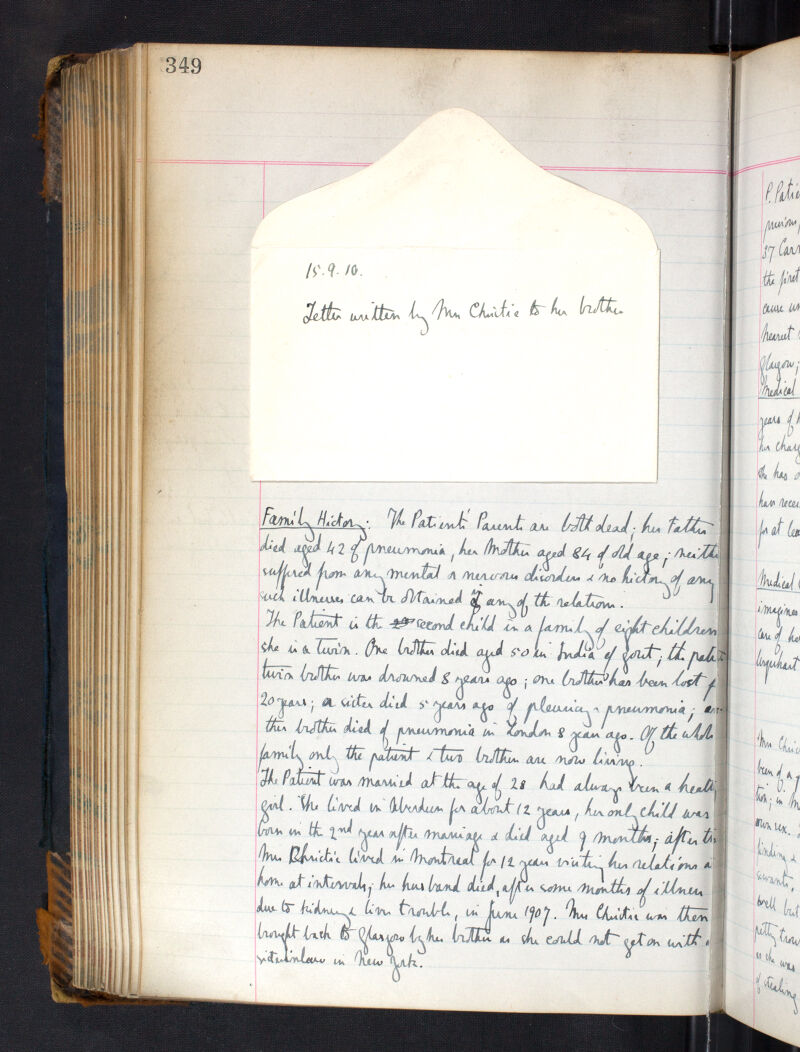 349
15.9.10.
Letter written by Mrs Christie to her brother
Family History: The Patients' Parents are both dead; her Father
died aged 42 of pneumonia, her Mother aged 84 of old age; neither
suffered from any mental or nervous disorders & no history of any
such illnesses can be obtained in any of the relations.
The Patient is the second child in a family of eight children
she is a twin. One brother died aged 50 in India of gout; the patients
twin brother was drowned 8 years ago; one brother has been lost for
20 years; a sister died 5 years ago of pleurisy & pneumonia; ano-
ther brother died of pneumonia in London 8 years ago. Of the whole
family only the patient & two brothers are now living.
The Patient was married at the age of 28 had always been a healthy
girl. She lived in Aberdeen for about 12 years, her only child was
born in the 2nd year after marriage & died aged 9 months; after this
Mrs Christie lived in Montreal for 12 years visiting her relations at
home at intervals; her husband died, after some months of illness
due to kidney & liver trouble, in June 1907. Mrs Christie was then
brought back to Glasgow by her brother as she could not get on with a
sister in law in New York.
P. Patie
37 Car
the first
cause un
nearest
Glasgow;
Medical
years of h
her charg
She has o
have recei
for at lea
Medical
imagines
care of ho
Urquhart
Mrs Chris
been of a
tion; in m
own sex.
kinding &
servants,
well but
petty trou
as she was
of stealing